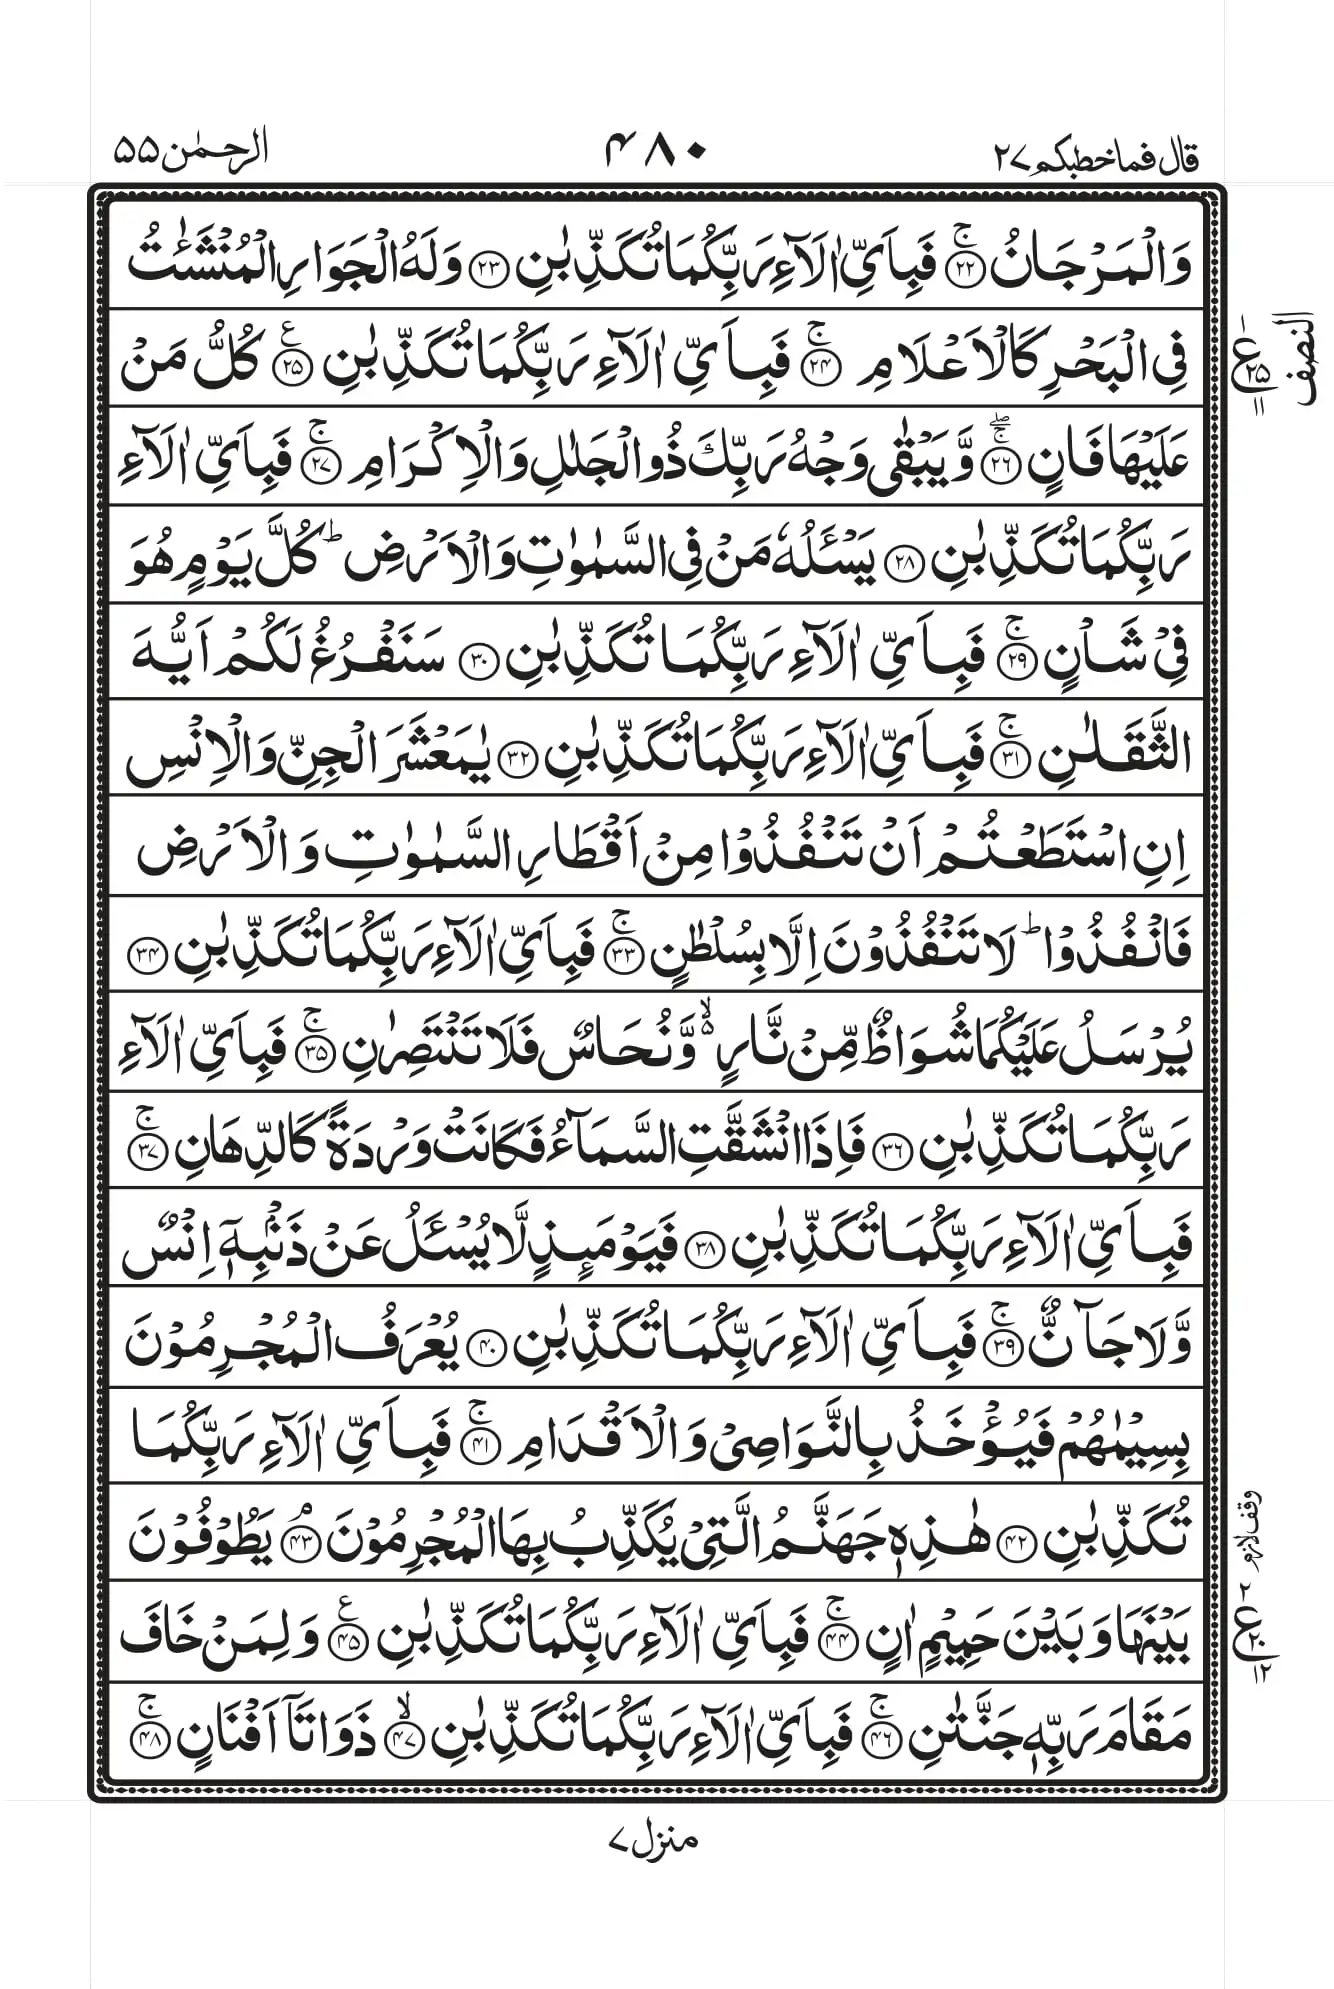 قال فماخطبكم ٢٧
۴۸۰
الرحمٰن ۵۵
وَالْمَرْجَانُ ۚ﴿۲۲﴾ فَبِاَيِّ اٰلَآءِ رَبِّكُمَا تُكَذِّبٰنِ ﴿۲۳﴾ وَلَهُ الْجَوَارِ الْمُنْشَـٰٔتُ
فِي الْبَحْرِ كَالْاَعْلَامِ ۚ﴿۲۴﴾ فَبِاَيِّ اٰلَآءِ رَبِّكُمَا تُكَذِّبٰنِ ﴿۲۵﴾ ع كُلُّ مَنْ
عَلَيْهَا فَانٍ ۚۖ﴿۲۶﴾ وَّيَبْقٰى وَجْهُ رَبِّكَ ذُو الْجَلٰلِ وَالْاِكْرَامِ ۚ﴿۲۷﴾ فَبِاَيِّ اٰلَآءِ
رَبِّكُمَا تُكَذِّبٰنِ ﴿۲۸﴾ يَسْـَٔلُهٗ مَنْ فِي السَّمٰوٰتِ وَالْاَرْضِ ؕ كُلَّ يَوْمٍ هُوَ
فِيْ شَاْنٍ ۚ﴿۲۹﴾ فَبِاَيِّ اٰلَآءِ رَبِّكُمَا تُكَذِّبٰنِ ﴿۳۰﴾ سَنَفْرُغُ لَكُمْ اَيُّهَ
الثَّقَلٰنِ ۚ﴿۳۱﴾ فَبِاَيِّ اٰلَآءِ رَبِّكُمَا تُكَذِّبٰنِ ﴿۳۲﴾ يٰمَعْشَرَ الْجِنِّ وَالْاِنْسِ
اِنِ اسْتَطَعْتُمْ اَنْ تَنْفُذُوْا مِنْ اَقْطَارِ السَّمٰوٰتِ وَالْاَرْضِ
فَانْفُذُوْا ؕ لَا تَنْفُذُوْنَ اِلَّا بِسُلْطٰنٍ ۚ﴿۳۳﴾ فَبِاَيِّ اٰلَآءِ رَبِّكُمَا تُكَذِّبٰنِ ﴿۳۴﴾
يُرْسَلُ عَلَيْكُمَا شُوَاظٌ مِّنْ نَّارٍ ۙ۬ وَّنُحَاسٌ فَلَا تَنْتَصِرٰنِ ۚ﴿۳۵﴾ فَبِاَيِّ اٰلَآءِ
رَبِّكُمَا تُكَذِّبٰنِ ﴿۳۶﴾ فَاِذَا انْشَقَّتِ السَّمَآءُ فَكَانَتْ وَرْدَةً كَالدِّهَانِ ۚ﴿۳۷﴾
فَبِاَيِّ اٰلَآءِ رَبِّكُمَا تُكَذِّبٰنِ ﴿۳۸﴾ فَيَوْمَئِذٍ لَّا يُسْـَٔلُ عَنْ ذَنْۢبِهٖٓ اِنْسٌ
وَّلَا جَآنٌّ ۚ﴿۳۹﴾ فَبِاَيِّ اٰلَآءِ رَبِّكُمَا تُكَذِّبٰنِ ﴿۴۰﴾ يُعْرَفُ الْمُجْرِمُوْنَ
بِسِيْمٰهُمْ فَيُؤْخَذُ بِالنَّوَاصِيْ وَالْاَقْدَامِ ۚ﴿۴۱﴾ فَبِاَيِّ اٰلَآءِ رَبِّكُمَا
تُكَذِّبٰنِ ﴿۴۲﴾ هٰذِهٖ جَهَنَّمُ الَّتِيْ يُكَذِّبُ بِهَا الْمُجْرِمُوْنَ ۘ﴿۴۳﴾ يَطُوْفُوْنَ
بَيْنَهَا وَبَيْنَ حَمِيْمٍ اٰنٍ ۚ﴿۴۴﴾ فَبِاَيِّ اٰلَآءِ رَبِّكُمَا تُكَذِّبٰنِ ﴿۴۵﴾ ع وَلِمَنْ خَافَ
مَقَامَ رَبِّهٖ جَنَّتٰنِ ۚ﴿۴۶﴾ فَبِاَيِّ اٰلَآءِ رَبِّكُمَا تُكَذِّبٰنِ ۙ﴿۴۷﴾ ذَوَاتَآ اَفْنَانٍ ۚ﴿۴۸﴾
النصف
ع ۲۵
وقف لازم
۲ ع ۲۰ ۲
منزل ۷